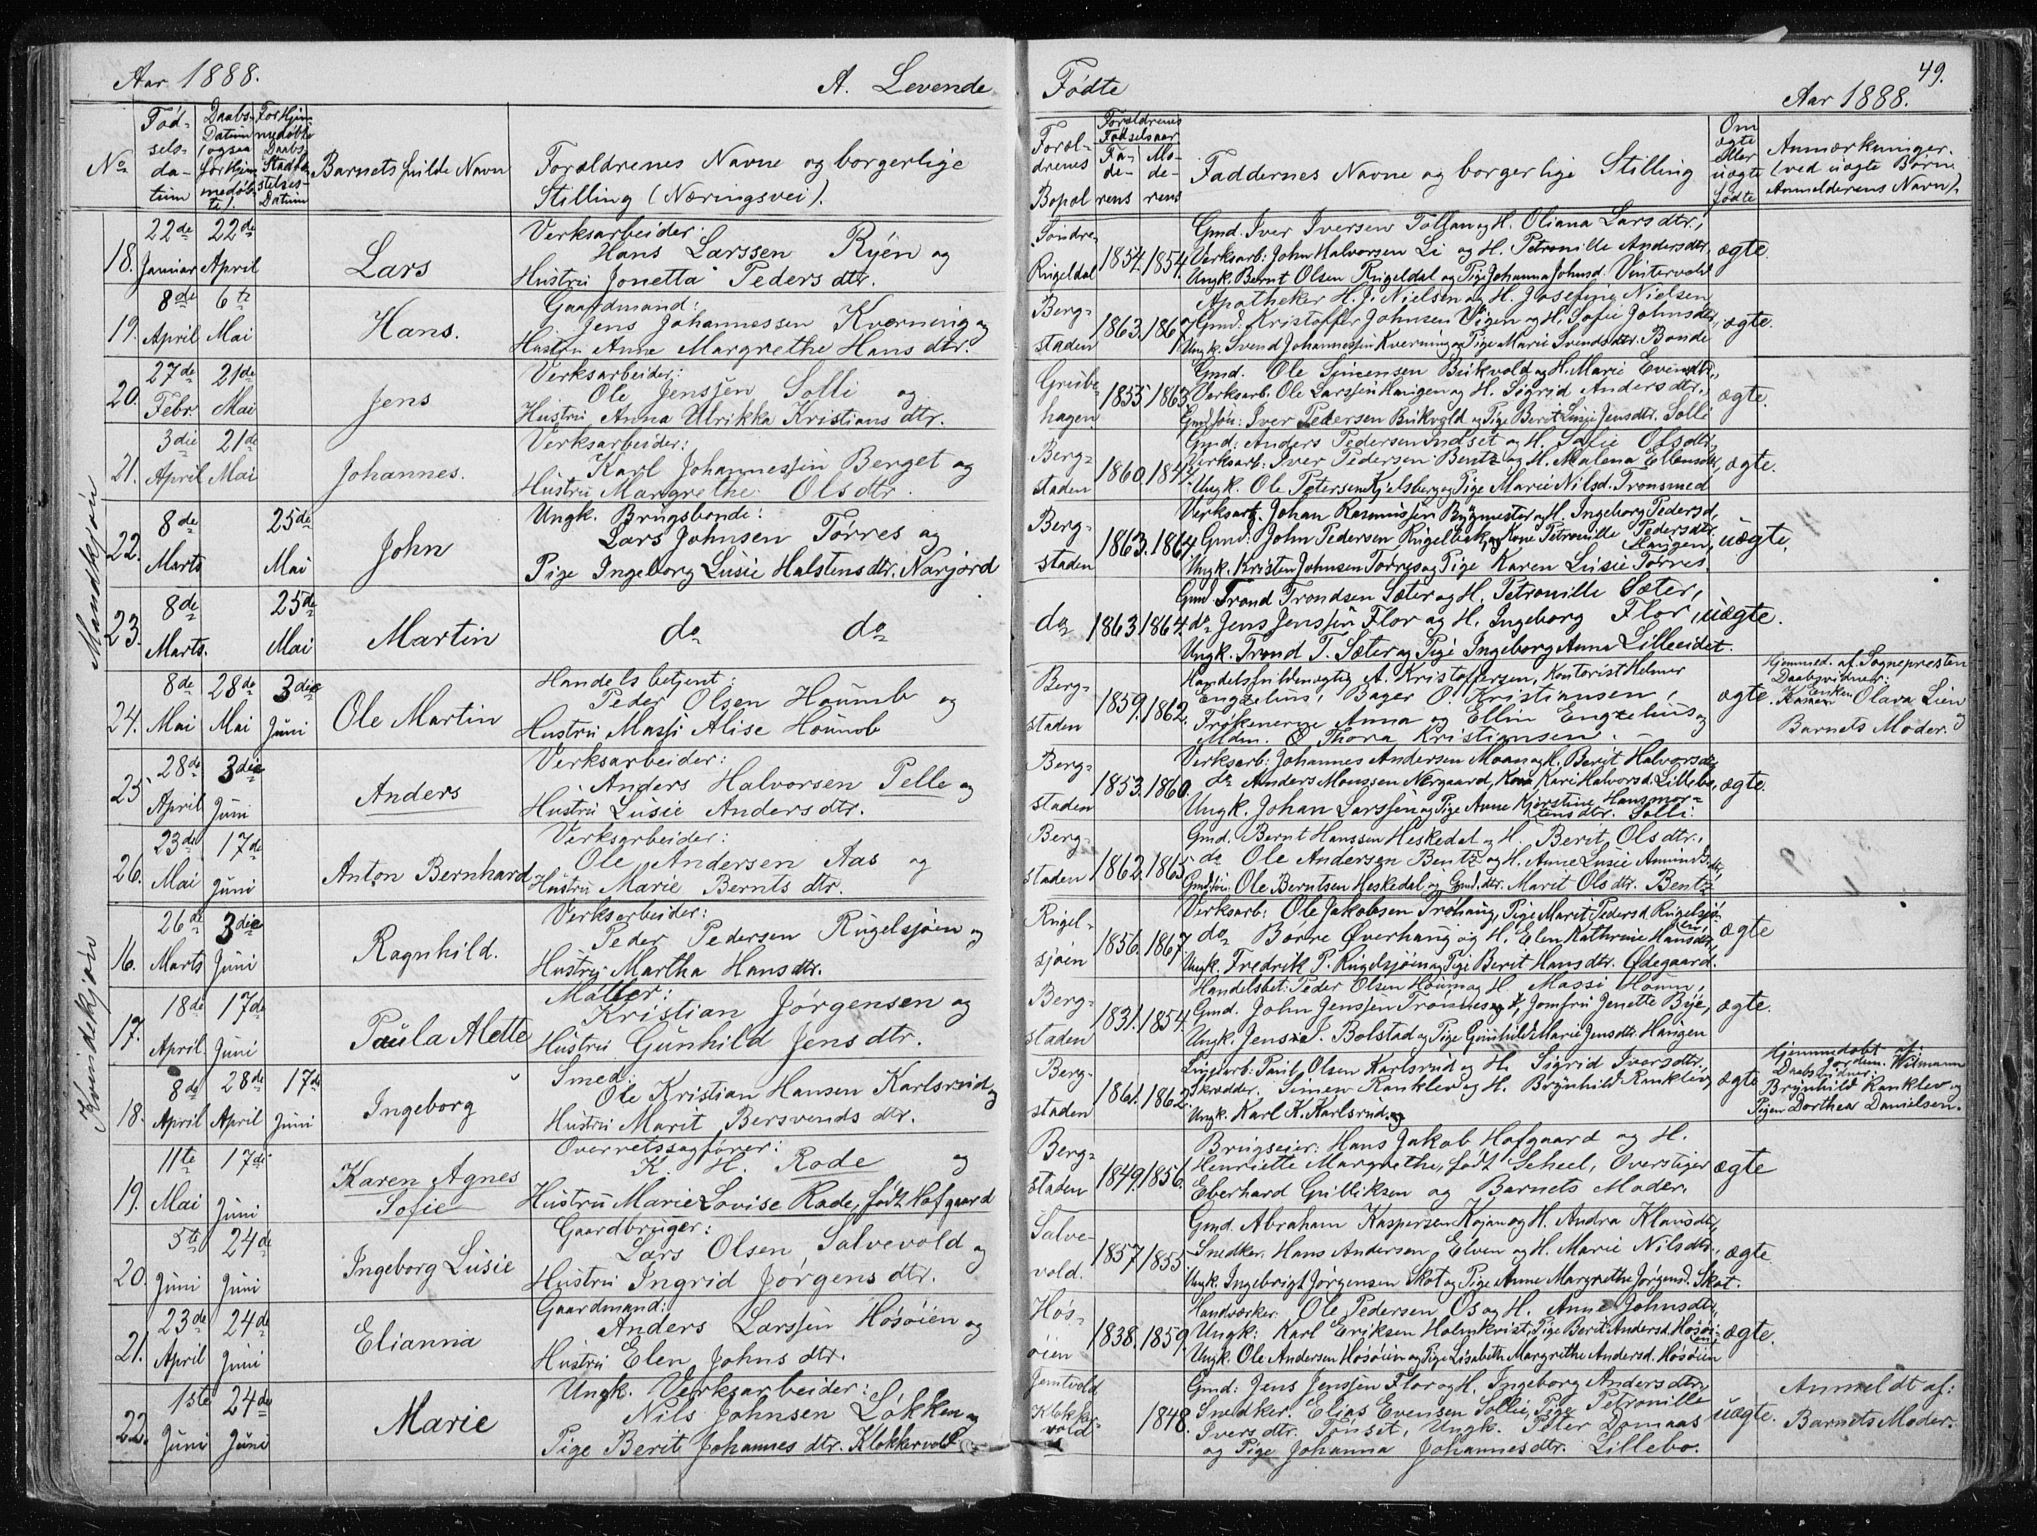 Aar 1888.
A. Levende
Fødte
Aar 1888.
49.
No
Fød-
sels-
da-
tum
Daabs-
Datum
(ogsaa
for Hjem-
medøb-
te).
For Hjem-
medøbte
Daabs
Stadfæ-
stelses-
Datum
Barnets fulde Navn
Forældrenes Navne og borgerlige
Stilling (Næringsvei).
Foræl-
drenes
Bopæl
Forældrenes
Fødselsaar
Fa-
de-
rens
Mo-
de-
rens
Faddernes Navne og borgerlige Stilling
Om
ægte
eller
uægte
fødte
Anmærkninger.
(ved uægte Børn
Anmelderens Navn).
Mandkjøn
18.
22de
Januar
22de
April
Lars
Verksarbeider:
Hans Larssen Ryen og
Hustru Jonetta Peders dtr.
Søndre
Rugeldal
1854. 1854.
Gmd. Iver Iversen Tollan og H. Oliana Lars dtr.,
Verksarb: John Halvorsen Li og H. Petronille Anders dtr,
Ungk. Bernt Olsen Rugeldal og Pige Johanna Johnsd. Vintervold
ægte.
19.
8de
April
6te
Mai
Hans.
Gaardmand:
Jens Johannessen Kverning og
Hustru Anne Margrethe Hans dtr.
Berg-
staden
1863. 1867.
Apotheker H. J. Nielsen og H. Josefine Nielsen,
Gmd: Kristoffer Johnsen Vigen og H. Sofie Johnsdtr,
Ungk. Svend Johannessen Kverning og Pige Marie Svends dtr. Bonde
ægte.
20.
27de
Febr
21de
Mai
Jens
Verksarbeider:
Ole Jenssen Solli og
Hustru Anna Ulrikka Kristians dtr.
Grube-
hagen
1855 1863.
Gmd. Ole Simensen Bukvold og H. Marie Evensdtr,
Verksarb. Ole Larssen Haugen og H. Sigrid Anders dtr.,
Gmdsøn: Iver Pedersen Bukvold og Pige Berit Sinje Jensdtr. Solli
ægte.
21.
3die
April
21de
Mai
Johannes.
Verksarbeider:
Karl Johannessen Berget og
Hustru Margrethe Ols dtr.
Berg-
staden
1860. 1847.
Gmd: Anders Pedersen Indset og H. Sofie Olsdtr,
Verksarb: Iver Pedersen Bentz og H. Malena Ellensdtr,
Ungk. Ole Petersen Kjelsberg og Pige Marie Nilsd. Tronsmed
ægte.
22.
8de
Marts
25de
Mai
John
Ungk. Brugsbonde:
Lars Johnsen Tørres og
Pige Ingeborg Lusie Halstens dtr. Narjord
Berg-
staden
1863. 1864.
Verksarb. Johan Rasmussen Bygmester og H. Ingeborg Pedersd,
Gmd: John Pedersen Rugelbek og Kone Petronille Pedersdtr.
Haugen,
Ungk. Kristen Johnsen Tørres og Pige Karen Lusie Tørres.
uægte.
23.
8de
Marts.
25de
Mai
Martin
do do
do
1863. 1864.
Gmd Trond Trondsen Sæter og H. Petronille Sæter,
do Jens Jenssen Flor og H. Ingeborg Flor,
Ungk. Trond T. Sæter og Pige Ingeborg Anna Lilleeidet.
uægte.
24.
8de
Mai
28de
Mai
3die
Juni
Ole Martin
Handelsbetjent:
Peder Olsen Houmb og
Hustru Massi Alise Houmb
Berg-
staden
1859. 1862.
Handelsfuldmægtig A. Kristoffersen, Kontorist Helmer
Engzelius, Bager O. Kristiansen,
Frøknerne Anna og Ellin Engzelius og
Mdm. Thora Kristiansen.
ægte.
Hjemmed. af Sognepresten
Daabsvidner:
Enken Olava Lien
og
Barnets Moder.
25.
28de
April
3die
Juni
Anders
Verksarbeider:
Anders Halvorsen Pelle og
Hustru Lusie Anders dtr.
Berg-
staden
1853. 1860.
Verksarb: Johannes Andersen Moan og H. Berit Halvorsdtr,
do Anders Monssen Nergaard, Kone Kari Halvorsd. Lillebo,
Ungk. Johan Larssen og Pige Anne Kjerstine Hansmor-
tensdtr. Solli.
ægte.
26.
23de
Mai
17de
Juni
Anton Bernhard
Verksarbeider:
Ole Andersen Aas og
Hustru Marie Bernts dtr.
Berg-
staden
1862. 1865.
Gmd. Bernt Hanssen Heskedal og H. Berit Ols dtr.,
do Ole Andersen Bentz og H. Anne Lusie Amunds dtr,
Gmdsøn: Ole Berntsen Heskedal og Gmd. dtr. Marit Ols dtr. Bentz
Kvindekjøn
16.
26de
Marts
3die
Juni
Ragnhild.
Verksarbeider:
Peder Pedersen Rugelsjøen og
Hustru Martha Hansdtr.
Rugel-
sjøen
1856. 1867.
Verksarb: Ole Jakobsen Trøhaug, Pige Marit Pedersd. Rugelsjø-
en,
do Børre Øverhaug og H. Elen Kathrine Hansdtr,
Ungk. Fredrik P. Rugelsjøen og Pige Berit Hans dtr. Ødegaard.
ægte
17.
18de
April
17de
Juni
Paula Alette
Møller:
Kristian Jørgensen og
Hustru Gunhild Jens dtr.
Berg-
staden
1831. 1854.
Handelsbet: Peder Olsen Houm og H. Massi Houm,
Gmd. John Jenssen Trønnes og Jomfru Jenette Bye,
Ungk. Jens J. Bolstad og Pige Gunhild Marie Jensdtr. Haugen
ægte.
18.
8de
April
28de
April
17de
Juni
Ingeborg
Smed:
Ole Kristian Hansen Karlsrud og
Hustru Marit Bersvends dtr.
Berg-
staden
1861. 1862.
Paul Olsen Karlsrud og H. Sigrid Ivers dtr,
Skrædder. Simen Ranklev og H. Brynhild Ranklev,
Ungk. Karl K. Karlsrud.
ægte
Hjemmedøbt af
Jordem. Wilmann
Daabsvidner:
Brynhild Ranklev og
Pigen Dorthea Danielsen.
19.
11te
Mai
17de
Juni
Karen Agnes
Sofie
Overretssagfører:
K. H. Rode og
Hustru Marie Lovise Rode, født Hofgaard
Berg-
staden
1849. 1856.
Brugseier: Hans Jakob Hofgaard og H.
Henriette Margrethe, født Scheel, Overstiger
Eberhard Gulliksen og Barnets Moder.
ægte
20.
5te
Juni
24de
Juni
Ingeborg Lusie
Gaardbruger:
Lars Olsen Salvevold og
Hustru Ingrid Jørgens dtr.
Salve-
vold.
1857. 1855.
Gmd. Abraham Kaspersen Kojan og H. Andra Klausdtr,
Snedker. Hans Andersen Elven og H. Marie Nilsdtr,
Ungk. Ingebrigt Jørgensen Skot og Pige Anne Margrethe Jørgensd. Skot.
ægte
21.
23de
April
24de
Juni
Elianna
Gaardmand:
Anders Larssen Høsøien og
Hustru Elen Johns dtr.
Høs-
øien
1838. 1859.
Handværker. Ole Pedersen Os og H. Anne Johnsdtr,
Ungk: Karl Eriksen Holmkvist, Pige Berit Andersd. Høsøi-
en,
Ungk. Ole Andersen Høsøien og Pige Lisabeth Margrethe Andersd. Høsøien
ægte.
22.
1ste
Juni
24de
Juni
Marie
Ungk. Verksarbeider:
Nils Johnsen Løkken og
Pige Berit Johannes dtr. Klokkervold
Jemtvold
Klokker-
vold
1848.
Gmd: Jens Jenssen Flor og H. Ingeborg Andersdtr,
Snedker. Elias Evensen Sollie, Pige Petronille
Ivers dtr. Tønset, Ungk. Peter Domaas
og Pige Johanna Johannesdtr. Lillebo.
uægte.
Anmeldt af:
Barnets Moder.